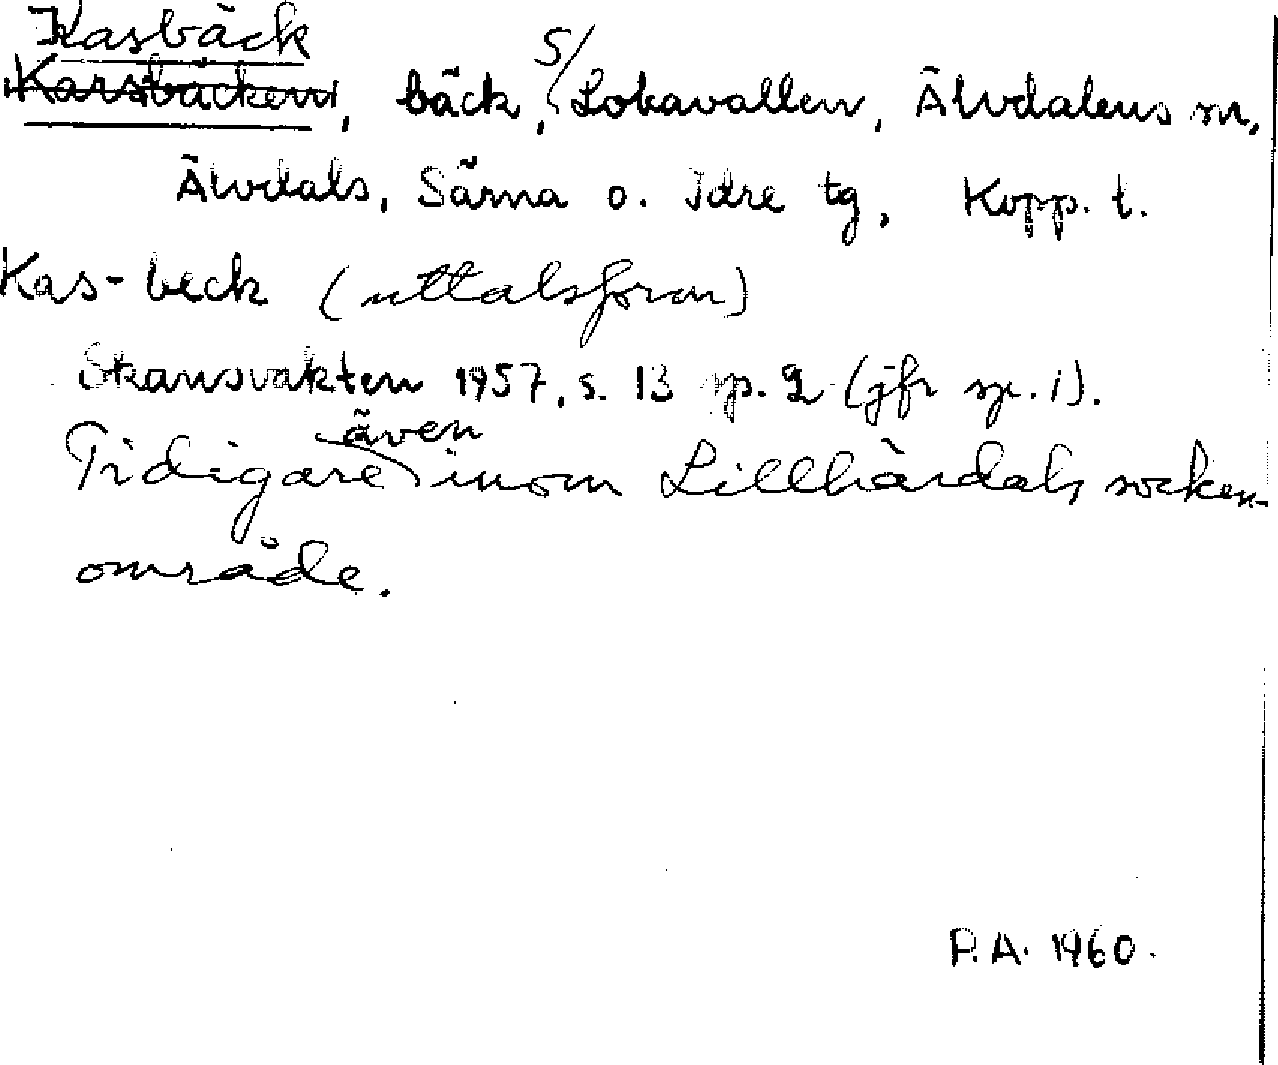 Kasbäck
Karsbäcken, bäck, S/ Lokavallen, Älvdalens sn,
Älvdals, Särna o. Idre tg, Kopp. l.
Kas-beck (uttalsform)
Skansvakten 1957, s. 13 sp. 2 (jfr sp. 1).
Tidigare även inom Lillhärdals socken-
område.
P.A. 1960.